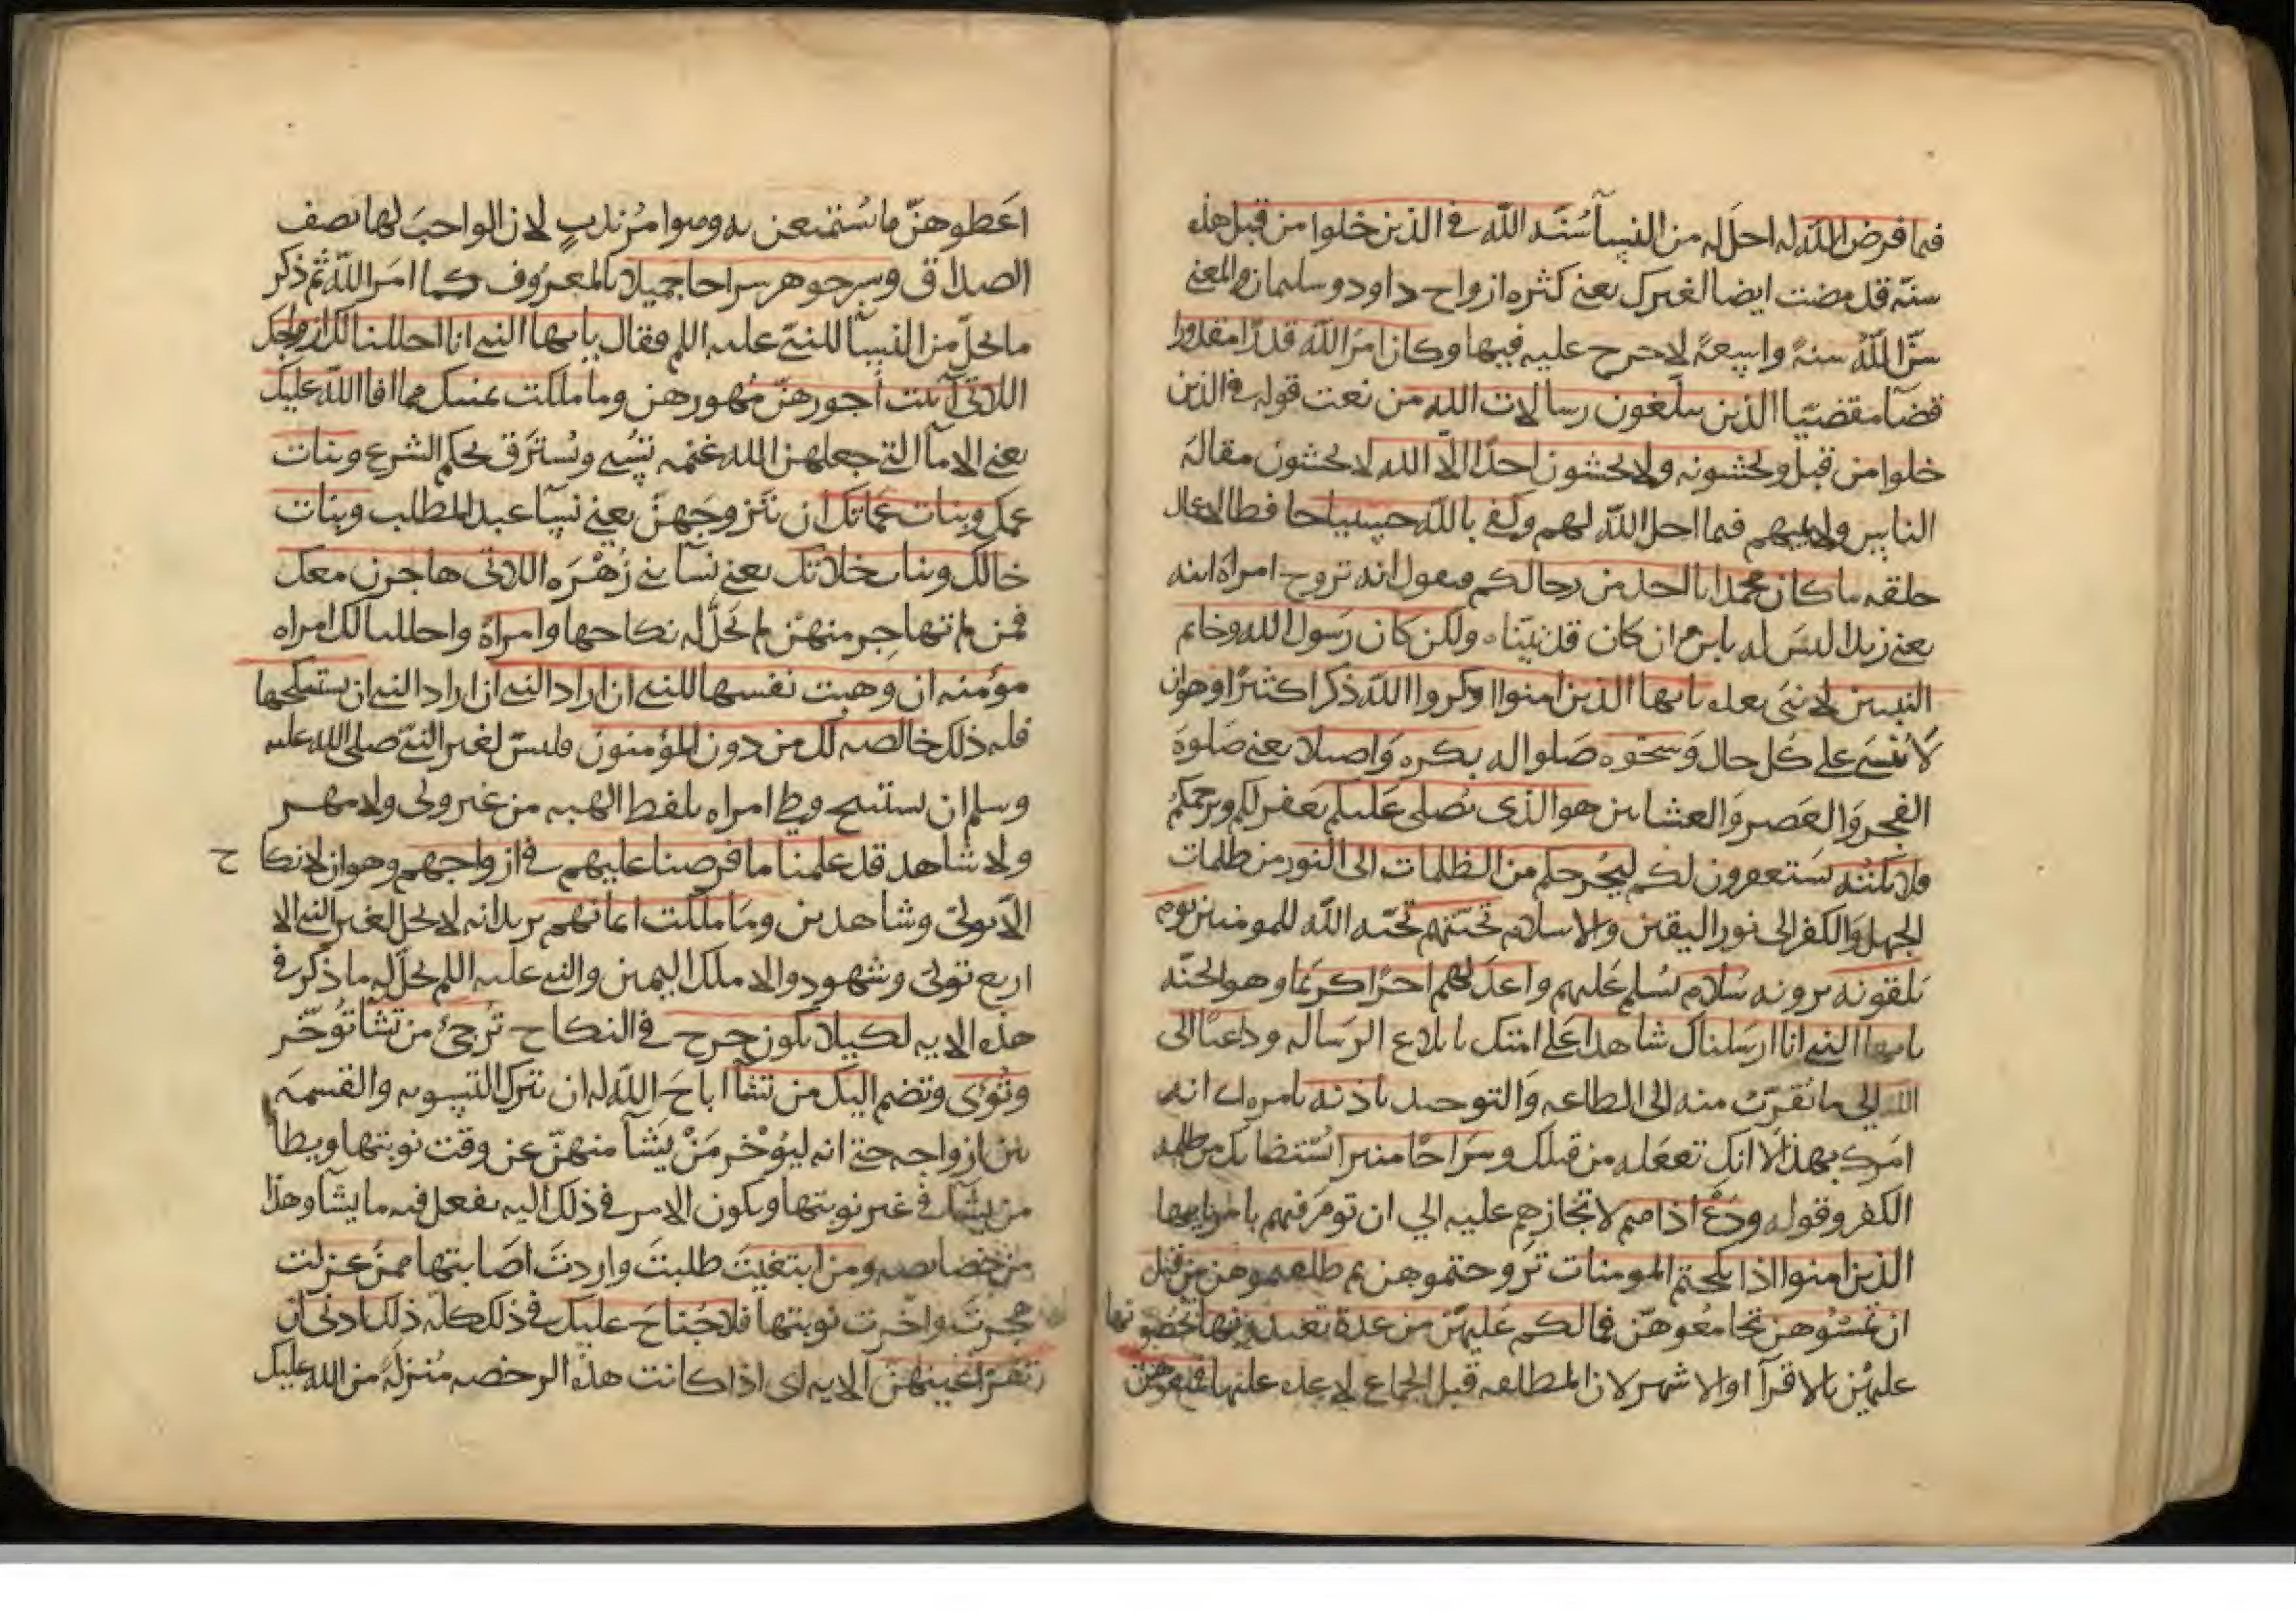 فيما فرض الله له احل له من النسآ سُنّه الله في الذين خلوا من قبل هذه
سنّه قد مضت ايضا لغيرك يعني كثره ازواج داود وسليمان والمعني
سنّ الله سنةً واسعةً لا حرج عليه فيها وكان امرُ الله قدرًا مقدورا
قضآ مقضيّا الذين يبلّغون رسالات الله من نعت قوله في الذين
خلوا من قبل ويخشونه ولا يخشون احدًا الّا الله لا يخشون مقالة
الناس ولايمتهم فيما احل الله لهم وكفي بالله حسيبا حافظا لاعمال
خلقه ما كان محمد ابا احد من رجالكم فيقول انه تزوج امراة ابنه
يعني زيدا ليس له بابن وان كان قد تبنّاه ولكن كان رسول الله وخاتم
النبيين لا نبي بعده يايها الذين امنوا اذكروا الله ذكرا كثيرًا وهو ان
لا يُنسي علي كل حال وسبحوه صَلوا له بكره واصيلا يعني صَلوة
الفجر والعَصر والعشاين هو الذي يُصلي عَليكم يغفر لكم ويرحمكم
وملايكته يستغفرون لكم ليُخرجكم من الظلمات الى النور من ظلمات
الجهل والكفر الى نور اليقين والاسلام تحيّتهم تحيّه الله للمومنين يوم
يلقونه يرونه سَلام يُسلم عَليهم واعدّ لهم اجرًا كريمًا وهو الجنّه
يايها النبي انا ارسَلناك شاهدا عَلى امتك بابلاغ الرسَاله وداعيًا الى
الله الي ما يُقرّب منه الى الطاعه والتوحيد باذنه بامره اي انه
امرك بهذا لا انك تفعَله من قبلك وسرَاجًا منيرا يُستضا بك من ظلمه
الكفر وقوله ودَعْ اذاهم لا تجازهم عليه الي ان تومر فيهم بامر يايها
الذين امنوا اذا نكحتم المومنات تزوجتموهن ثم طلقتموهن من قبل
ان تمسّوهن تجامعُوهنّ فما لكم عَليهنّ من عدة تعتدونها تحصونها
عليهنّ بالاقرآ او الاشهر لان المطلقه قبل الجماع لا عده عليها فمتعوهن
اعَطوهنّ ما يَستمتعن به وهوا مرُ ندبٍ لان الواجبَ لها نصف
الصداق وسرحوهن سراحا جميلا بالمعروف كما امَر اللهُ ثم ذكر
ما يحلّ من النسآ للنبيّ عليه السلم فقال يايها النبي انا احللنا لك ازواجك
اللاتي آتيت أجورهنّ مُهورهن وما ملكت يمينك مما افا الله عليك
يعني الامآ التي جعلهن الله غنمه تُسبي وتُسترَق بحكم الشرع وبنات
عمك وبنات عمّاتك ان تتزوجَهنّ يعني نسآ عبد المطلب وبنات
خالك وبنات خلاتك يعني نسآ بني زُهْرَه اللاتي هاجرن معك
فمن لم تهاجِر منهنّ لم يَحلَّ له نكاحها وامراةً واحللنا لك امراه
مؤمنه ان وهبت نفسها للنبي ان اراد النبي ان اراد النبي ان يستنكحها
فله ذلك خالصه لك من دون المؤمنون فليسَ لغير النبيّ صلي الله عليه
وسلم ان يستبيح وطي امراه بلفظ الهبه من غير ولي ولا مهر
ولا شاهد قد علمنا ما فرضنا عليهم في ازواجهم وهو ان لا نكا ح
الّا بوليّ وشاهدين ومَا ملكت ايمانهم يريد انه لا يحل لغير النبي الا
اربع توليّ وشهود والا ملك اليمين والنبي عليه السلم يحلّ له ما ذُكر في
هذه الايه لكيلا يكون حرج في النكاح تُرجئ من تشآ تُوخّر
وتُؤي وتضم اليك من تشآ اباحَ الله له ان يترك التسويه والقسمَه
بين ازواجه حتي انه ليُؤخر مَنْ يَشآ منهنّ عن وقت نوبتها ويطا
من يشآ في غير نوبتها ويكون الامر في ذلك اليه يفعل فيه ما يشآ وهذا
من خصايصه ومن ابتغيتَ طلبتَ واردتَ اصَابتها ممنَ عزلت
هجرتَ واخّرت نوبتها فلا جُناحَ عليك في ذلك كله ذلك ادنى ان
تقرّ اعينهنّ الايه اي اذا كانت هذه الرخصه مُنزلةً من الله عليك